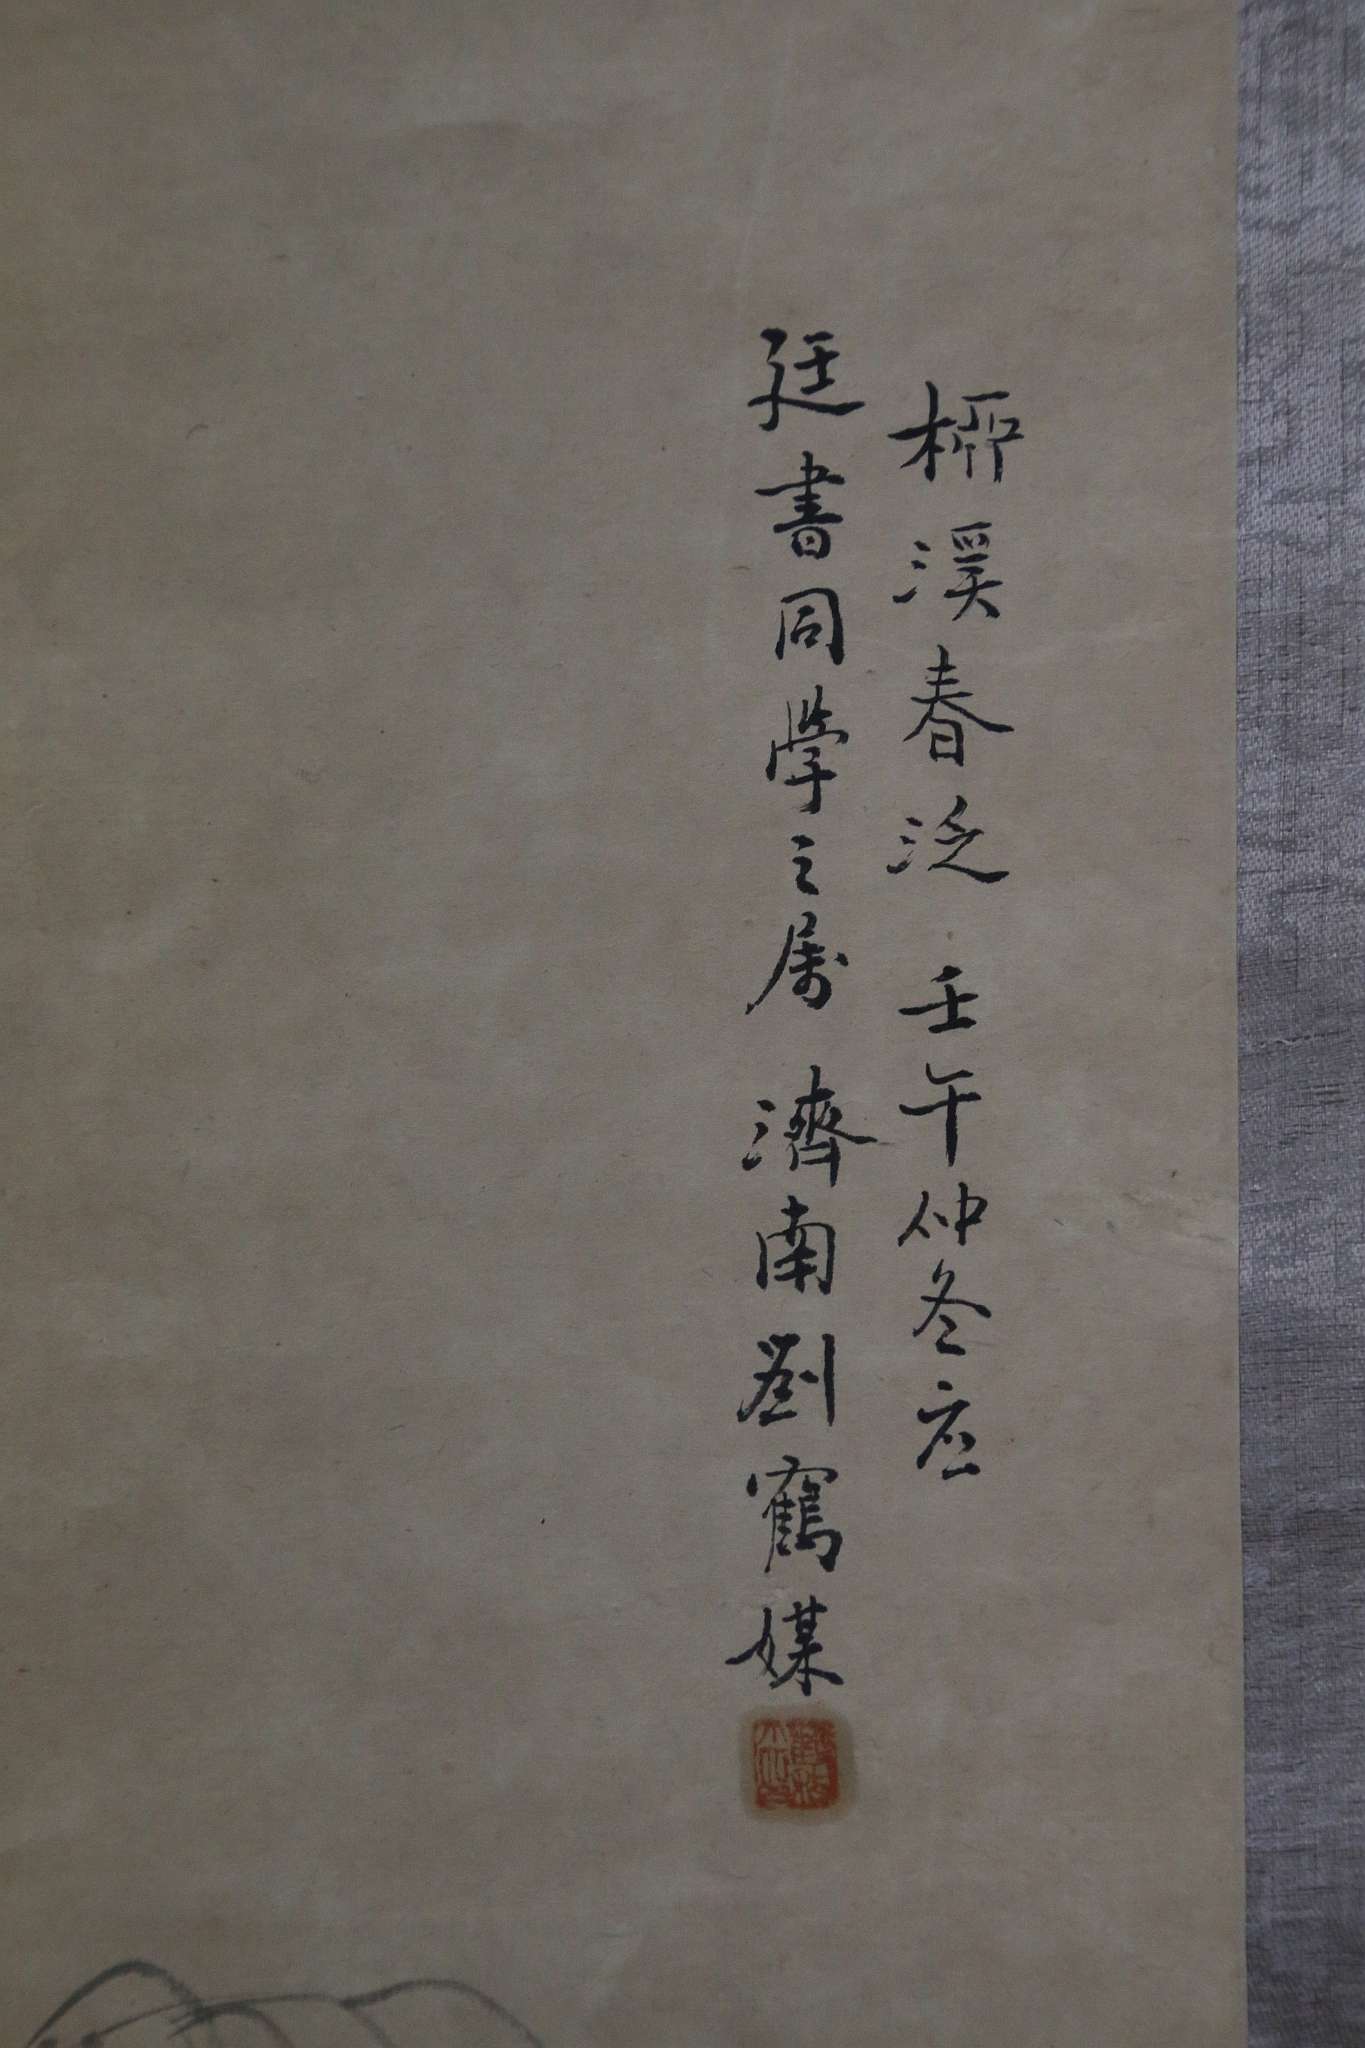 柳溪春泛 壬午仲冬应
廷書同學之属 濟南劉鶴媒